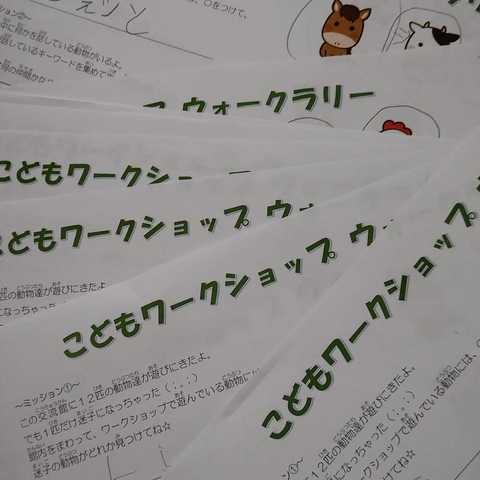 ○をつけて、
ミッション②
している動物がいるよ。
しているキーワードを集めて
ウォークラリー
こどもワークショッ
こどもワークショップ ウォ
匹の動物達が遊びにきたよ。
になっちゃった
こどもワークショップ ウ
～ミッション①～
この交流館に12匹の動物達が遊びにきたよ。
でも1匹だけ迷子になっちゃった(；；)
館内をまわって、ワークショップで遊んでいる動物に
迷子の動物がどれか見つけてね☆
こどもワークショップ
12匹の動物達が遊びにきたよ。
迷子になっちゃった(；；)
ワークショップで遊んでいる動物には、○
どれか見つけてね☆